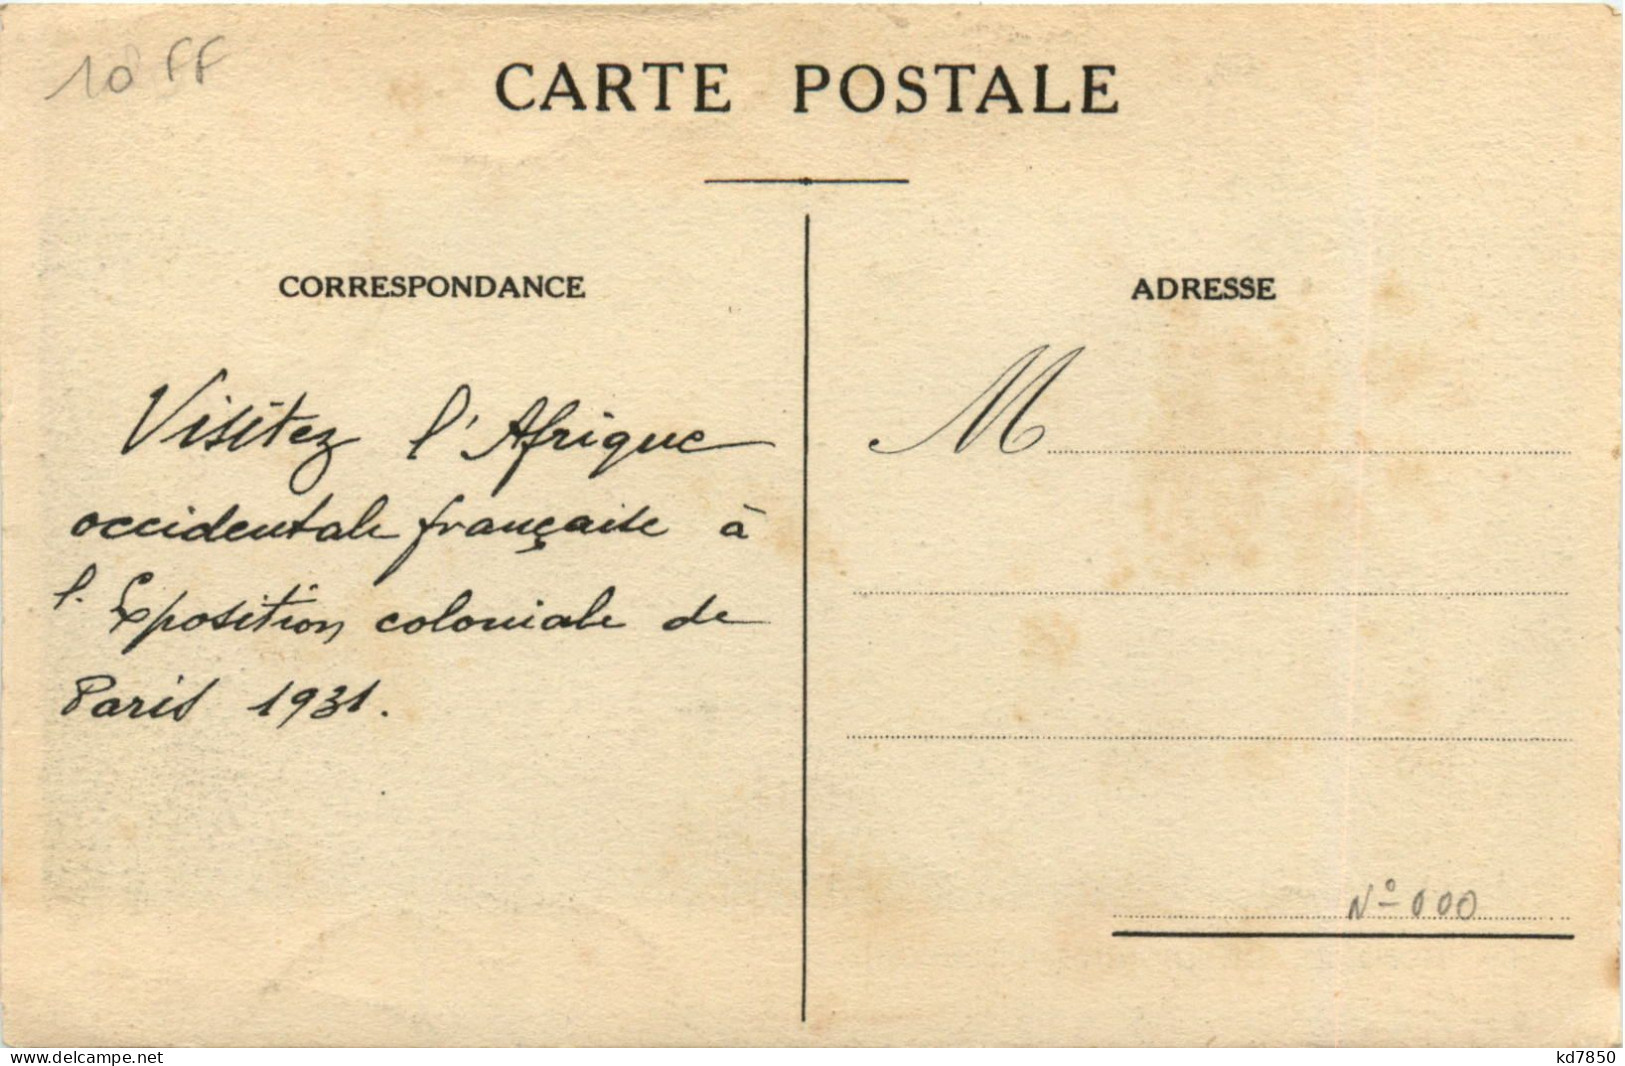 10 FF
CARTE POSTALE
CORRESPONDANCE
Visitez l'Afrique
occidentale française à
l'Exposition coloniale de
Paris 1931.
ADRESSE
M
N° 000
www.delcampe.net
kd7850